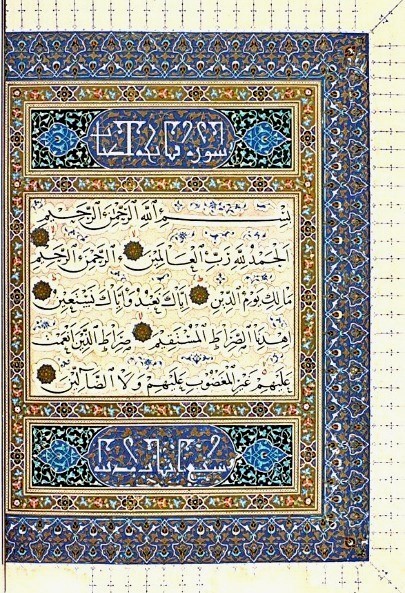 سورة فاتحة الكتاب
بِسْمِ اللَّهِ الرَّحْمَنِ الرَّحِيمِ
الْحَمْدُ لِلَّهِ رَبِّ الْعَالَمِينَ الرَّحْمَنِ الرَّحِيمِ
مَالِكِ يَوْمِ الدِّينِ إِيَّاكَ نَعْبُدُ وَإِيَّاكَ نَسْتَعِينُ
اهْدِنَا الصِّرَاطَ الْمُسْتَقِيمَ صِرَاطَ الَّذِينَ أَنْعَمْتَ
عَلَيْهِمْ غَيْرِ الْمَغْضُوبِ عَلَيْهِمْ وَلَا الضَّالِّينَ
سبع آيات